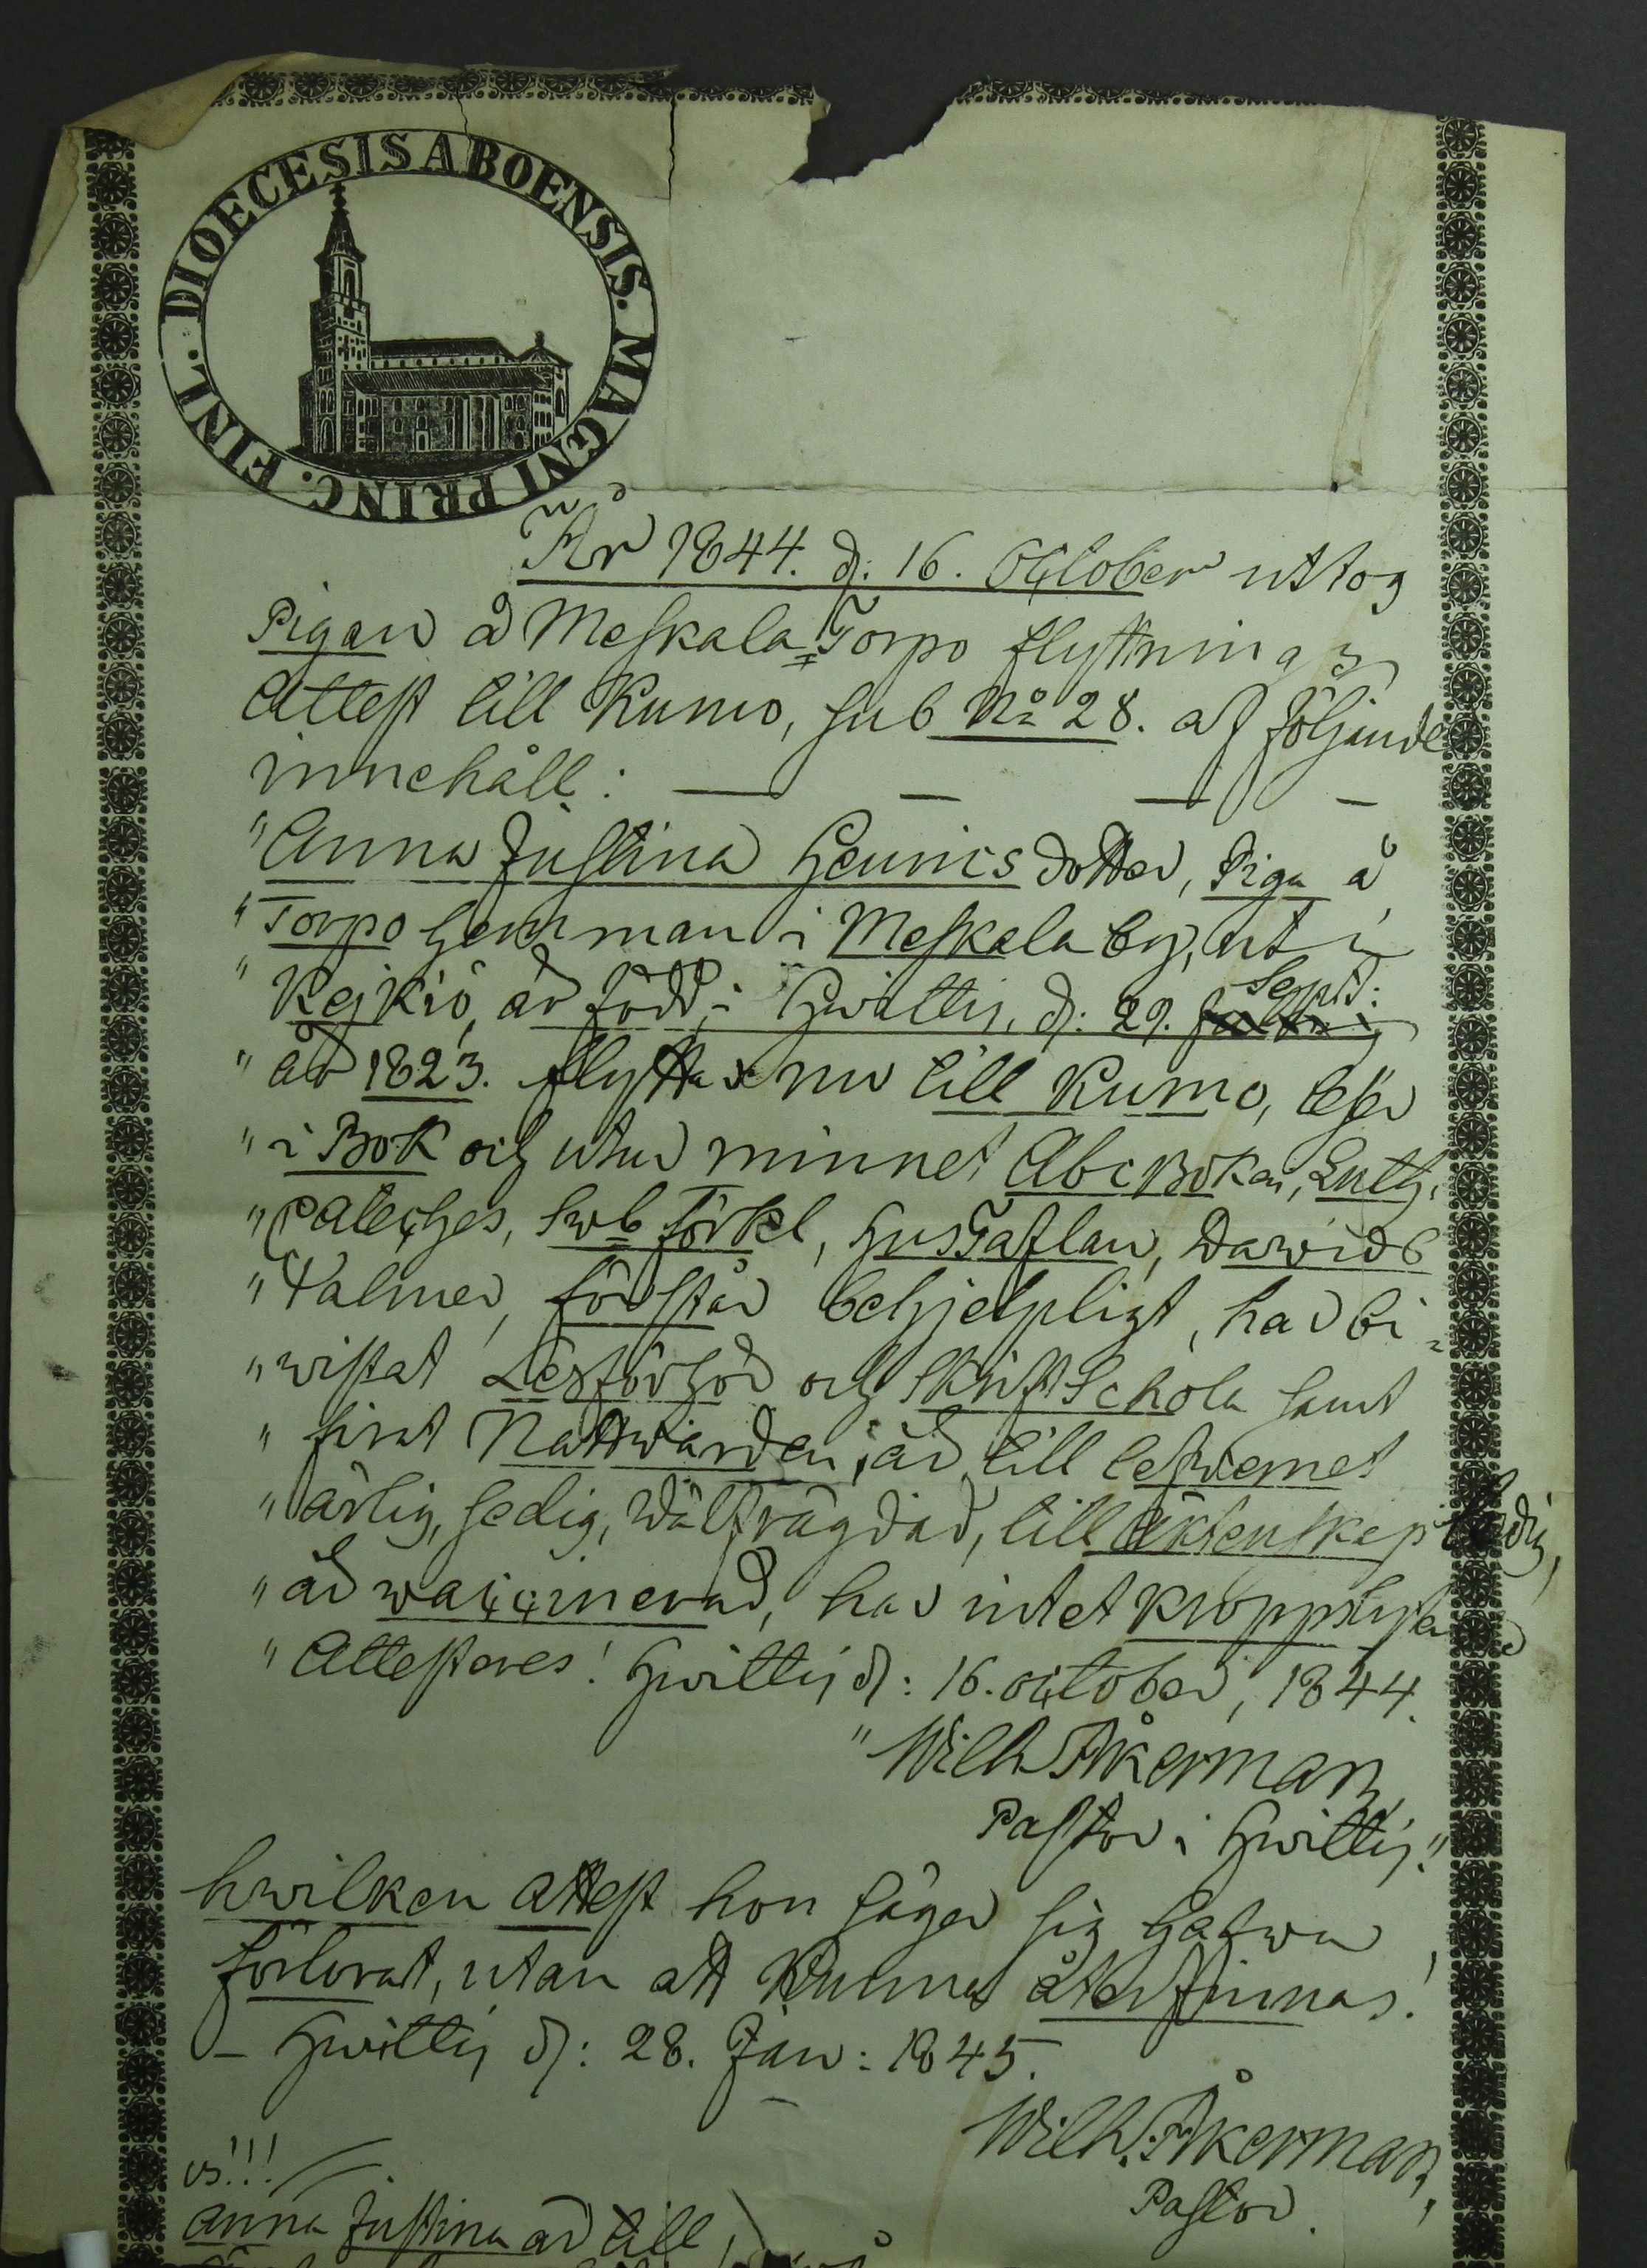 DIOECESIS ABOENSIS. MAGNI PRINC. FINL.
År 1844. d. 16. October uttog
Pigan å Meskala=Torpo flyttnings
Attest till Kumo, sub No 28. af följande
innehåll: — — — —
"Anna Justina Henrics dotter, Piga å
"Torpo hemman i Meskala by, ut i
"Kejkiö, är född i Hwittis, d: 29. Sept:
"år 1823. flyttar nu till Kumo, läser
"i Bok och utur minnet Abc Boken, Luth.
"Cateches, Swb förkl, HusTaflan, Dawids
"Psalmer, förstår behjelpligt, har bi=
"wistat Läsförhör och SkriftSchola samt
"firat Nattwarden, är till lefwernet
"ärlig, sedig, wälfrägdad, till Äktenskap ledig,
"är waccinerad, har intet kroppslyte
"Attesteres! Hwittis d: 16. october, 1844.
"Wilh Åkerman,
Pastor i Hwittis."
hwilken attest hon säger sig hafwa
förlorat, utan att kunna återfinnas!
– Hwittis d: 28. Jan: 1845.
Wilh. Åkerman,
Pastor.
vs!!!
Anna Justina är till